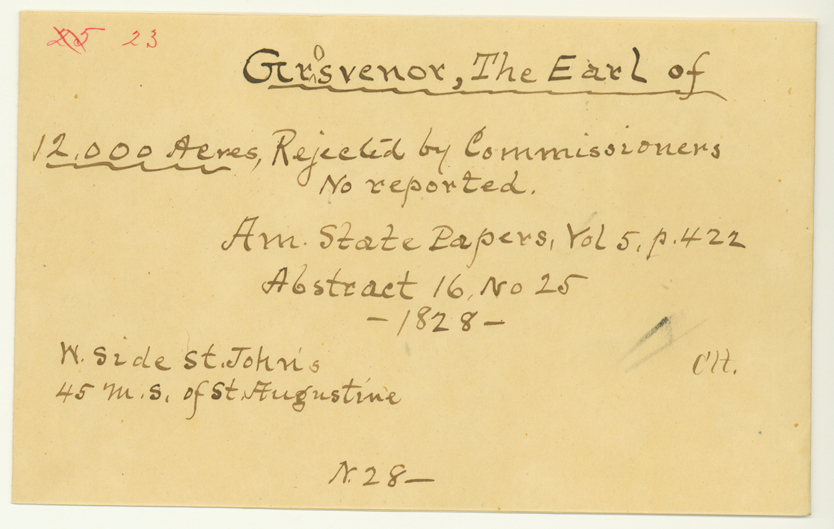 25 23
Grosvenor, The Earl of
12.000 Acres, Rejected by Commissioners
No reported.
Am. State Papers, Vol 5, p.422
Abstract 16, No 25
-1828-
W. Side St. John's
45 M.S. of St. Augustine
N. 28-